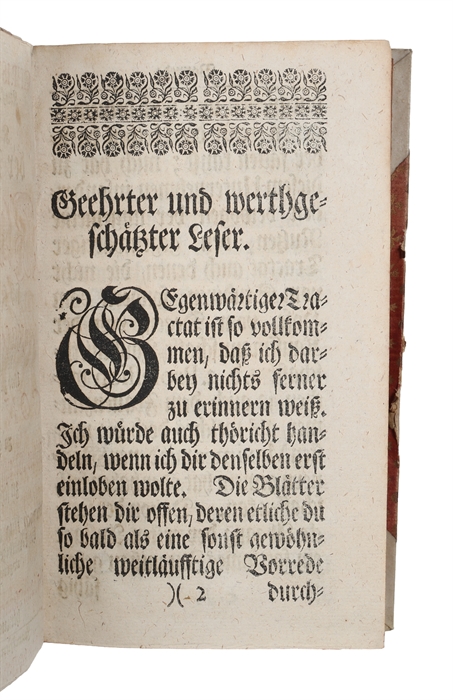 Geehrter und werthge-
schätzter Leser.
GEgenwärtiger Tra-
ctat ist so vollkom-
men, daß ich dar-
bey nichts ferner
zu erinnern weiß.
Ich würde auch thöricht han-
deln, wenn ich dir denselben erst
einloben wolte. Die Blätter
stehen dir offen, deren etliche du
so bald als eine sonst gewöhn-
liche weitläufftige Vorrede
)( 2 durch-